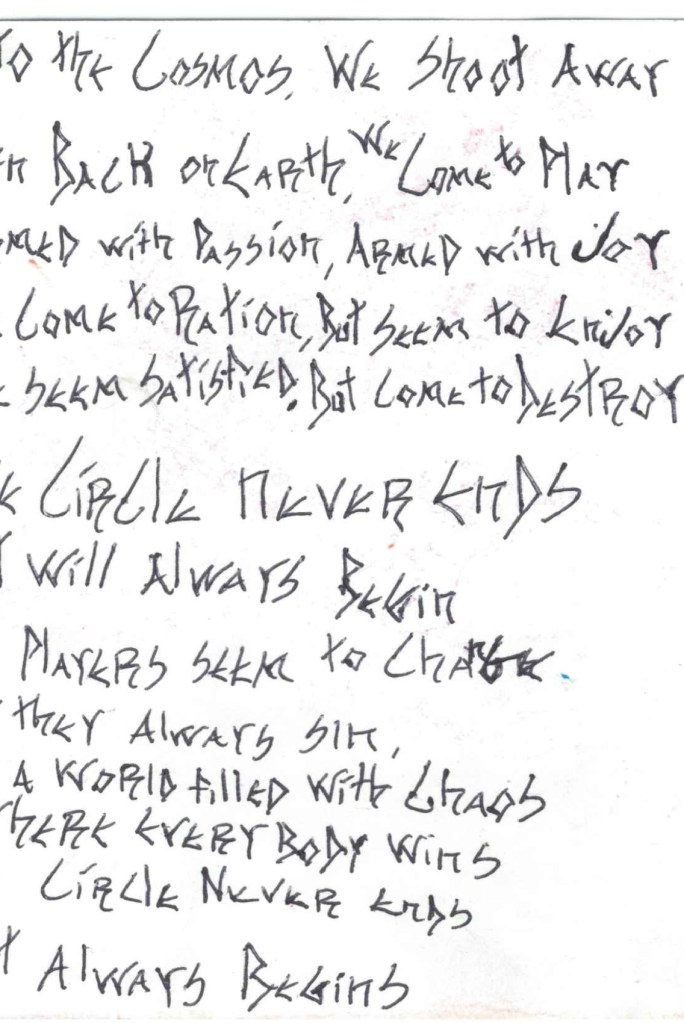 To the Cosmos, We Shoot Away
n Back on Earth, We Come to Play
med with Passion, Armed with Joy
Come to Ration, But seem to Enjoy
e seem Satisfied, But come to Destroy
e Circle Never Ends
Will Always Begin
Players seem to Change
they Always sin,
A World filled with Chaos
here Every Body Wins
Circle Never ends
t Always Begins